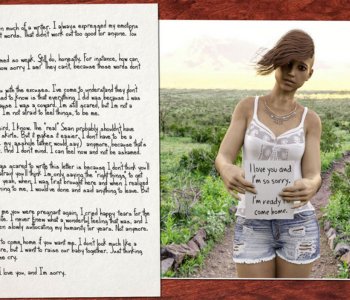 n much of a writer. I always expressed my emotions
t words. That didn't work out too good for anyone. You
med as weak. Still do, honestly. For instance, how can
how sorry I am? They can't, because those words don't
u with the excuses. I've come to understand they don't
ed to know is that everything I did was because I was
cause I was a coward. I'm still scared, but I'm not a
I'm not afraid to feel things, to be me.
ird, I know. The "real" Sean probably shouldn't have
skirts. But it makes it easier, I don't have to be a
my asshole father would say) anymore, because that's
. And I don't mind. I can feel now and not be ashamed.
ga scared to write this letter is because I don't think you'll
afraid you'll think I'm only saying the "right things" to get
yeah, when I was first brought here and when I realized
ning to me, I would've done and said anything to leave. But
me you were pregnant again, I cried happy tears for the
life. I never knew what a wonderful feeling that was, and I
en slowly advocating my humanity for years. Not anymore.
to come home if you want me. I don't look much like a
re, but I want to raise our baby together. Just thinking
me cry.
I love you, and I'm sorry.
I love you and
I'm so sorry.
I'm ready to
come home.